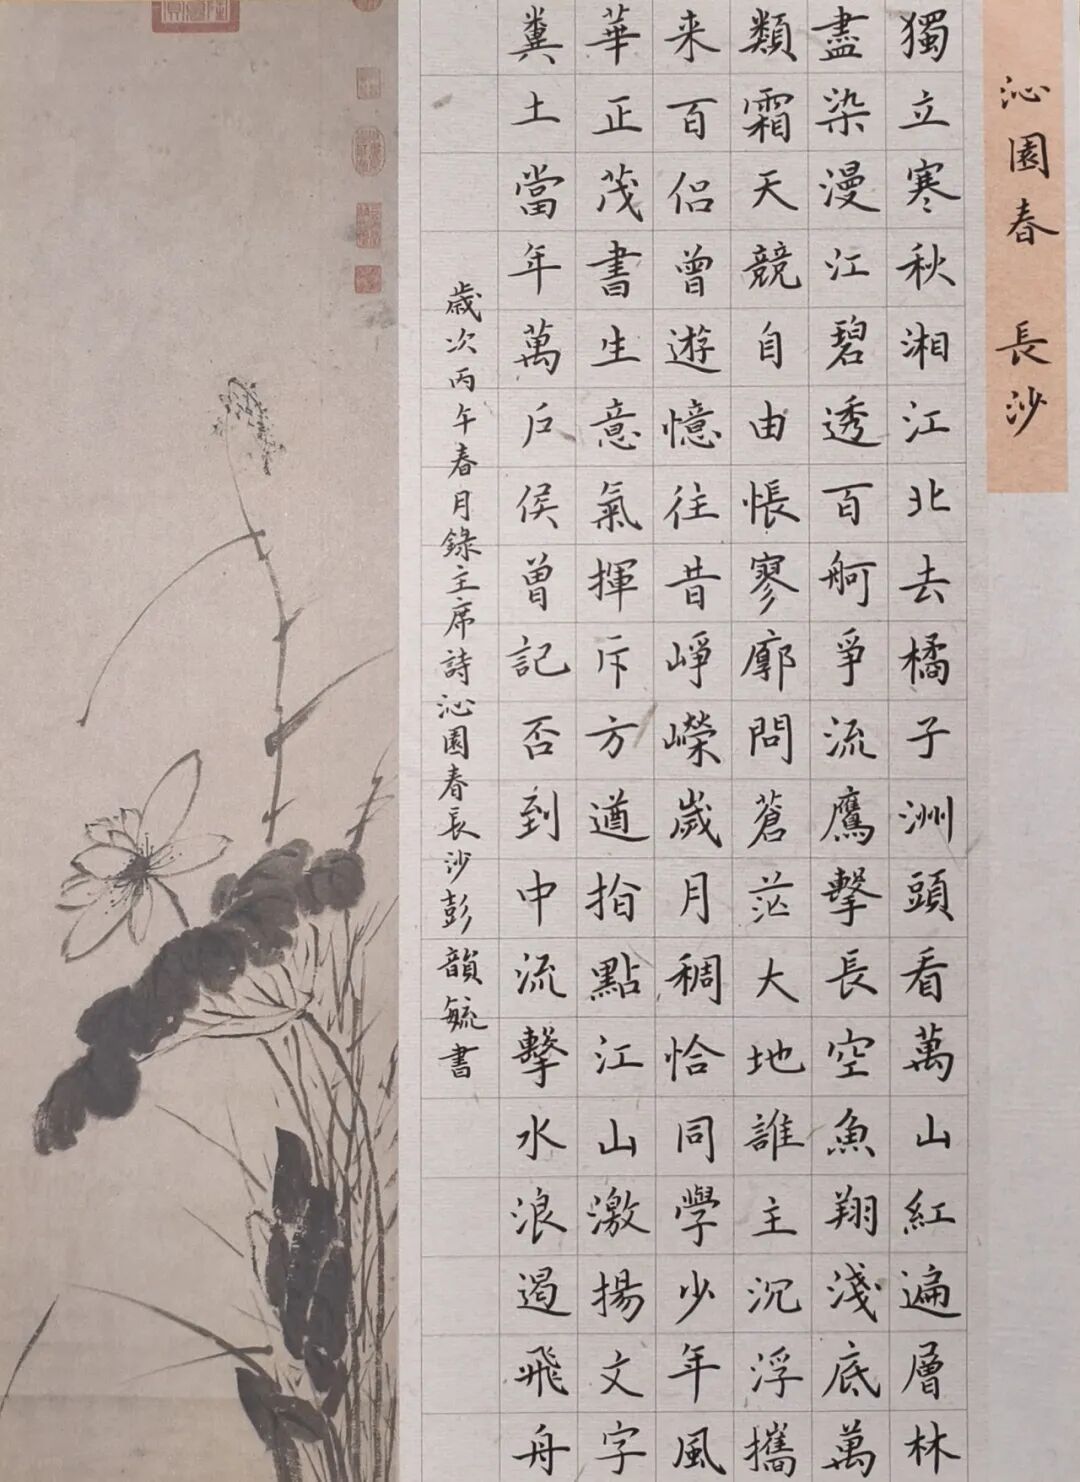 沁園春 長沙
獨立寒秋湘江北去橘子洲頭看萬山紅遍層林
盡染漫江碧透百舸爭流鷹擊長空魚翔淺底萬
類霜天競自由悵寥廓問蒼茫大地誰主沉浮攜
来百侣曾遊憶往昔崢嶸歲月稠恰同學少年風
華正茂書生意氣揮斥方遒指點江山激揚文字
糞土當年萬户侯曾記否到中流擊水浪遏飛舟
歲次丙午春月錄主席詩沁園春長沙彭韻毓書